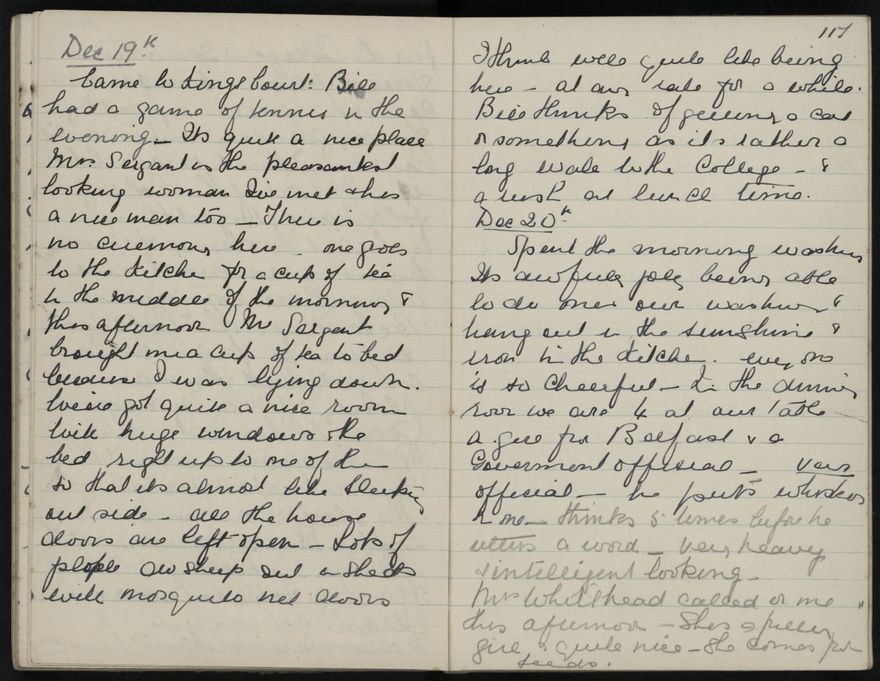 Dec 19th
Came to Kings Court: Bill
had a game of tennis in the
evening - Its quite a nice place
Mrs Sargant is the pleasantest
looking woman Ive met & has
a nice man too - There is
no ceremony here - one goes
to the kitchen for a cup of tea
in the middle of the morning &
this afternoon Mr Sargant
brought me a cup of tea to bed
because I was lying down.
We've got quite a nice room
with huge windows & the
bed right up to one of them
so that its almost like sleeping
out side - all the house
doors are left open - Lots of
people do sleep out in sheds
with mosquito net doors
117
I think we'll quite like being
here - at any rate for a while.
Bill thinks of getting a car
or something as its rather a
long walk to the College - &
a rush at lunch time.
Dec 20th
Spent the morning washing
Its awfully jolly being able
to do ones own washing &
hang out in the sunshine &
iron in the kitchen. every one
is so cheerful - In the dining
room we are 4 at our table
a girl from Belfast & a
Goverment official - very
official - he puts whiskers
on one - thinks 5 times before he
utters a word - very heavy
& intelligent looking -
Mrs Whitehead called on me
this afternoon - Shes a pretty
girl & quite nice - She comes from
Leeds.